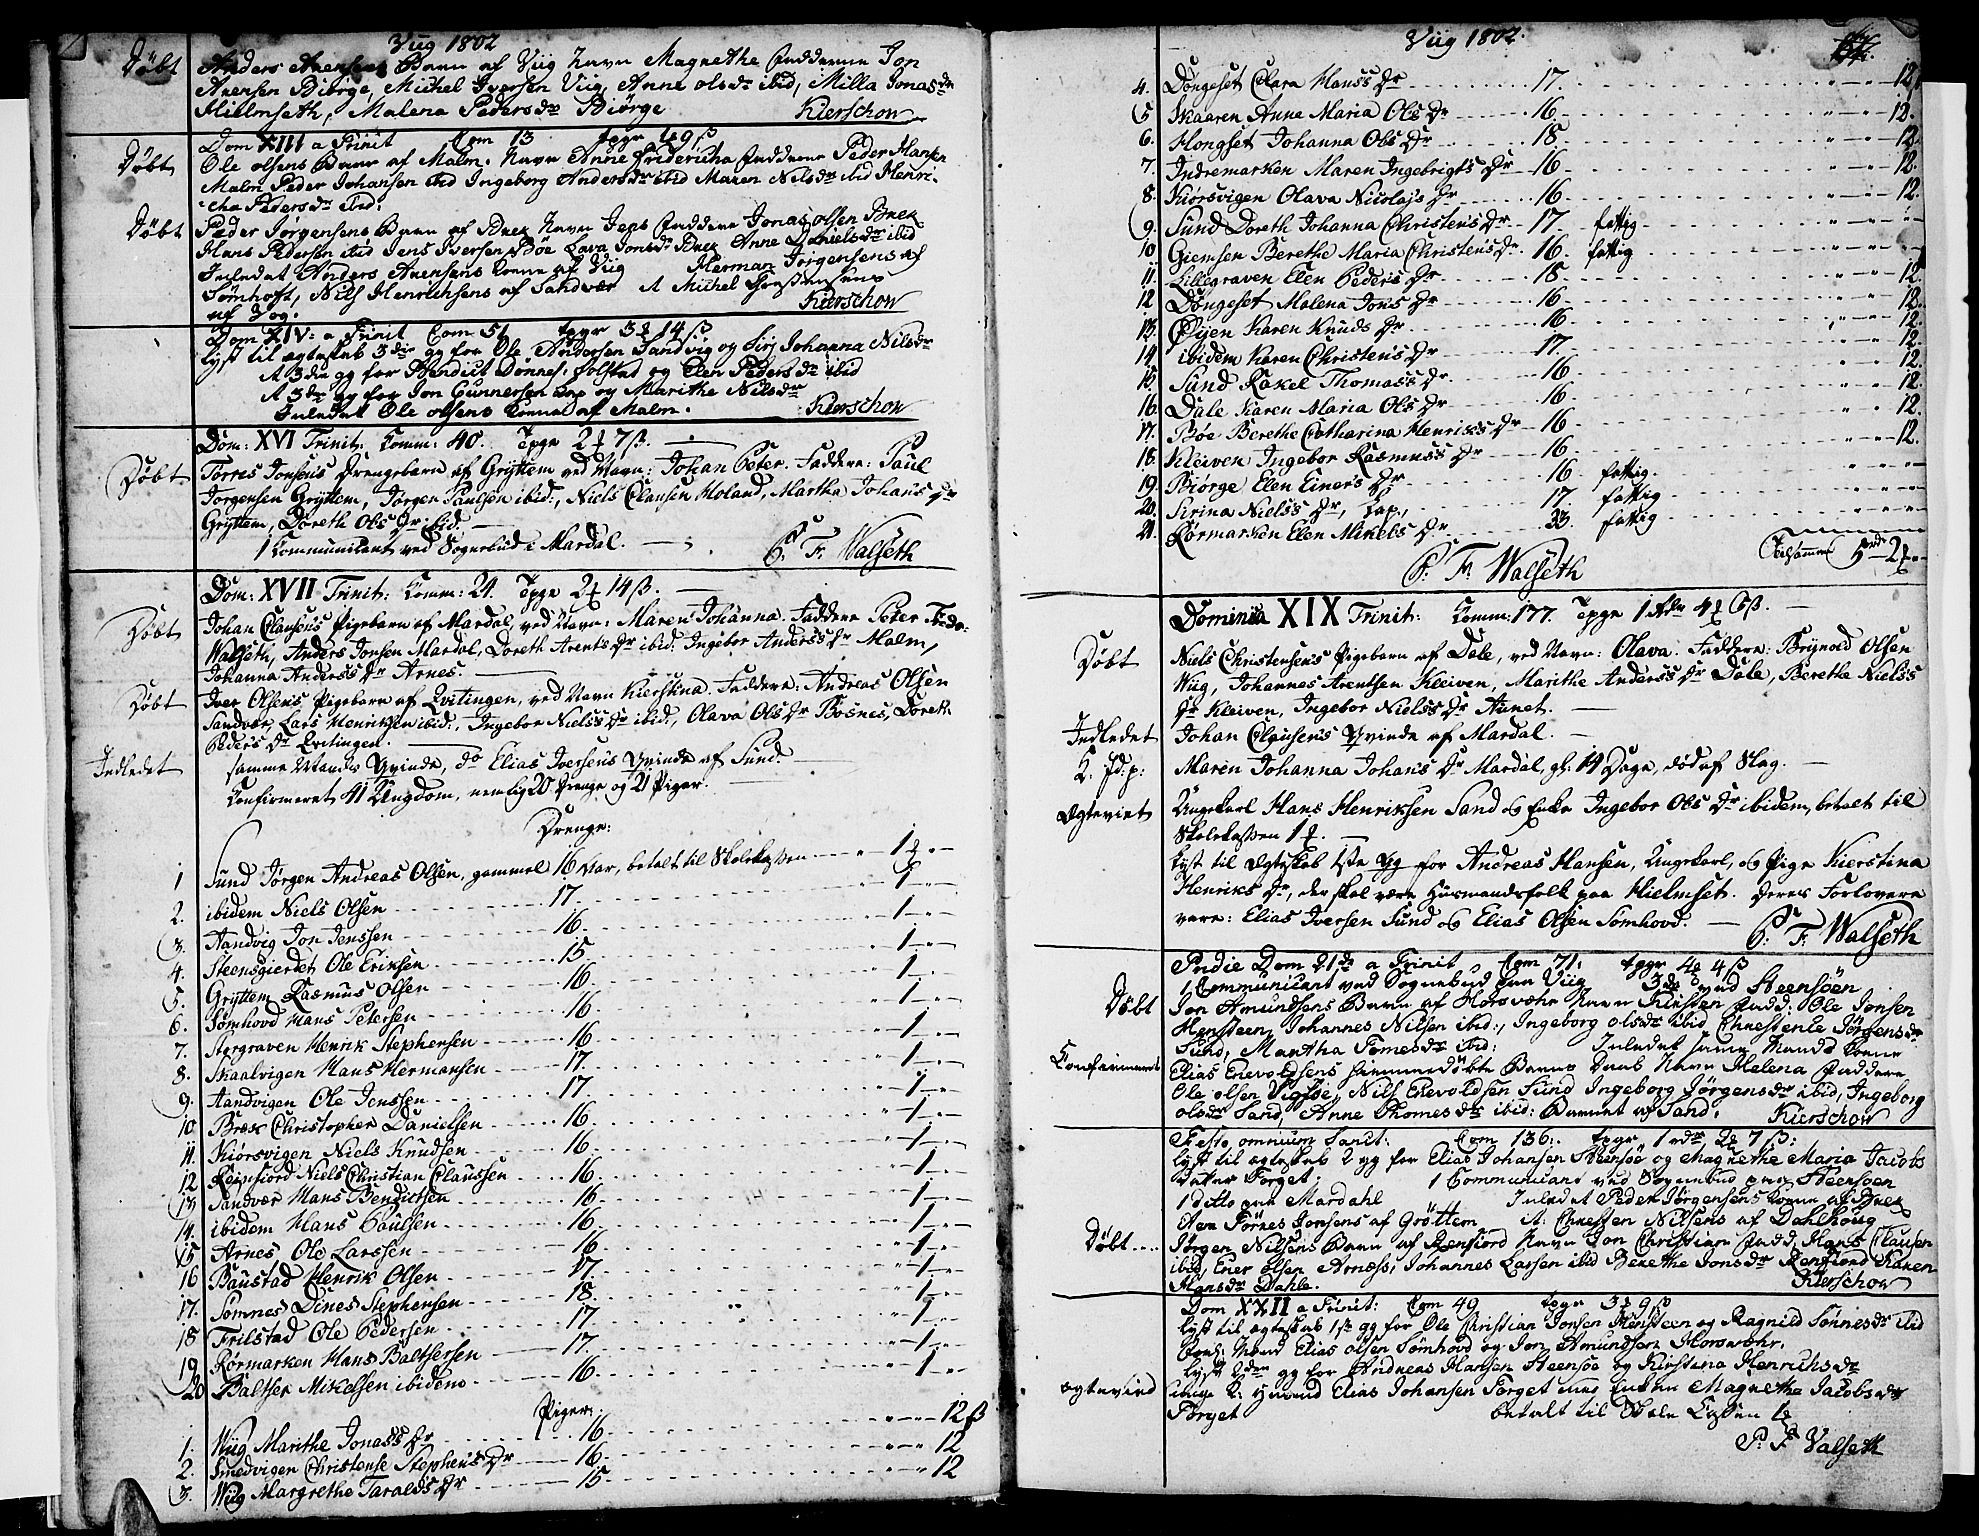 Viig 1802
Døbt Anders Arensens Barn af Viig Navn Magnethe Fadderne Jon
Arensen Biørge, Michel Iversen Viig, Anne olsdr ibid, Milla Jonasdr
Hielmseth, Malena Pedersdr Biørge Kierschow
Dom XIII a Trinit Com 13 tpgr 1 ƒ 9 ß
Døbt Ole olsens Barn af Malm. Navn Anne Fridericha Faddere Peder Hansen
Malm Peder Johansen ibid Ingeborg Andersdr ibid Maren Nilsdr ibid Henri-
cha Pedersdr ibid.
Døbt Peder Jørgensens Barn af Bræk Navn Jens Faddere Jonas olsen Bræk
Hans Pedersen ibid Jens Iversen Bøe Lava Jonsdr Bræk Anne Danielsdr ibid
Inledet Anders Arensens kone af Viig Herman Jørgensens af
Sømhoft, Nils Henrichsens af Sandvær it Michel
af Kierschow
Dom XIV: a Trinit Com 51 tpgr 3 ƒ 14 ß
lyst til ægteskab 3die gg for Ole Andersen Sandvig og Siri Johanna Nilsdr
it 3die gg for Bendict Dønnes. folstad og Elen Pedersdr ibid
it 3die gg for Jon Gunnersen og Marithe Nilsdr
Inledet Ole olsens kone af Malm. Kierschow
Dom: XVI Trinit: Komm: 40. Tpge 2 ƒ 7 ß.
Døbt Torris Jonsens Drengebarn af Gryttem ved Navn: Johan Peter. Faddere: Paul
Jørgensen Gryttem, Jørgen Paulsen ibid:, Niels Clausen Moland, Martha Johans Dr
Gryttem, Doreth Ols Dr ibid.
1 Communicant ved Sognebud i Mardal. P: F: Walseth
Dom: XVII Trinit: Komm: 24. Tpge 2 ƒ 14 ß.
Døbt Johan Clausens Pigebarn af Mardal, ved Navn: Maren Johanna. Faddere Peter Fr:
Walseth, Anders Jonsen Mardal, Doreth Arents Dr ibid. Ingebor Anderss Dr Malm,
Johanna Anderss Dr Arnes.
Døbt Iver Olsens Pigebarn af Qvitingen, ved Navn Kierstina. Faddere: Andreas Olsen
Sandvær, Lars Henriksen ibid:, Ingebor Nielss Dr ibid:, Olava Ols Dr Bosnes, Doreth
Peders Dr Qvitingen.
Indledet samme Mands Qvinde, do Elias Iversens Qvinde af Sund.
Confirmeret 41 Ungdom, nemlig 20 Drenge og 21 Piger.
Drenge:
1 Sund Jørgen Andreas Olsen, gammel 16 Aar, betalt til Skolekassen 1 ƒ
2. ibidem Niels Olsen 17. 1
3. Aandvig Jon Jenssen 16. 1
4. Steensgierdet Ole Eriksen 15 1
5. Gryttem Rasmus Olsen 16 1
6. Sømhovd Hans Petersen 16. 1
7. Storgraven Henrik Stephensen 16 1
8. Skaalvigen Hans Hermansen 17. 1
9. Aandvigen Ole Jenssen 17. 1
10 Bræk Christopher Danielsen 16. 1
11. Kiørsvigen Niels Knudsen 16. 1
12 Reinfiord Niels Christian Claussen 16. 1
13 Sandvær Hans Bendictsen 16. 1
14. ibidem Hans Paulsen 16. 1
15 Arnes Ole Larssen 16. 1
16 Baustad Henrik Olsen 17. 1
17. Somnes Dines Stephensen 18. 1
18 Trilstad Ole Pedersen 17. 1
19. Rørmarken Hans Baltsersen 17. 1
20 Baltser Mikelsen ibidem 16. 1
Piger.
1. Wiig Marithe Jonass Dr 16. 12 ß
2. Smedvigen Christense Stephens Dr 16. 12
3. Wiig Margrethe Taralds Dr 15 12
Viig 1802.
4. Dongeset Clara Hanss Dr 17. 12.
5 Skaaren Anne Maria Ols Dr 16. 12.
6. Hongset Johanna Ols Dr 18. 12.
7. Indremarken Maren Ingebrigts Dr 16. 12.
8. Kiørsvigen Olava Nicolajs Dr 16. 12.
9. Sund Doreth Johanna Christens Dr 17. fattig
10 Giemsen Berethe Maria Christens Dr 16. fattig
11 Lillegraven Elen Peders Dr 18. 12.
12 Dongeset Malena Jons Dr 16. 12.
13. Øyen Karen Knuds Dr 16. 12.
14 ibidem Karen Christens Dr 17. 12.
15 Sund Rakel Thomass Dr 16. 12.
16. Dale Karen Maria Ols Dr 16. 12.
17. Bøe Berethe Catharina Henriks Dr 16. 12.
18. Kleiven Ingebor Rasmuss Dr 16. 12.
19. Biørge Elen Einers Dr 16 fattig.
20. Sirina Nielss Dr, 17. fattig
21. Rørmarken Elen Mikels Dr 23. fattig
P: F: Walseth tilsammen 5 rdr 2 ƒ
Dominica XIX Trinit: Komm: 177. Tpge 1 rdr 4 ƒ 6 ß.
Døbt Niels Christensens Pigebarn af Dale, ved Navn: Olava. Faddere: Brynold Olsen
Wiig, Johannes Arentsen Kleiven, Marithe Anderss Dr Dale, Berethe Nielss
Dr Kleiven, Ingebor Nielss Dr Aunet.
Indledet Johan Clausens Qvinde af Mardal.
Maren Johanna Johans Dr Mardal, gl: 14 Dage, død af Slag.
Ægteviet Ungekarl Hans Henriksen Sand og Enke Ingebor Ols Dr ibidem, betalt til
Skolekassen 1 ƒ.
Lyst til Ægteskab 1ste gg for Andreas Hansen, Ungekarl, og Pige Kierstina
Henriks Dr, der skal være Huusmandsfolk paa Hielmset. Deres Forlovere
vare: Elias Iversen Sund og Elias Olsen Sømhovd. P: F: Walseth
Pridie Dom 21de a Trinit Com 71: tpgr 4 ƒ 4 ß
1 Communicant ved Sognebud paa Viig 3de ved Steensøen
Døbt Jon Amundsens Barn af Horsvohr Navn Kirsten Fadd: Ole Jonsen
Hensteen, Johannes Nilsen ibid:, Ingeborg olsdr ibid Chrestenle Jørgensdr
Sund, Martha Tomesdr ibid: Inledet same Mands kone
Confirmeret Elias Enevoldsens hiemmedøbte Barns Daab Navn Malena Faddere
Ole olsen Vigsøe, Nils Enevoldsen Sund Ingeborg Jørgensdr ibid, Ingeborg
olsdr Sand, Anne Thomesdr ibid: Barnet af Sand. Kierschow
Festo omnium Sanct: Com 136: tpgr 1 rdr 2 ƒ 7 ß:
lyst til ægteskab 2 gg for Elias Johansen Steensøe og Magnethe Maria Jacobs
Datter Torget. 1 Communicant ved Sognebud paa Steensøen
1 ditto paa Mardahl Inledet Peder Jørgensens kone af Bræk
item Tørres Jonsens af Grøttem it: Chresten Nilsens af Dahlhoug
Døbt.... Jørgen Nilsens Barn af Renfiord Navn Jon Christian Fadd, Hans Clausen
ibid, Ener olsen Arness, Johannes Larsen ibid Berethe Jonsdr Renfiord Karen
Hansdr Dahle. Kierschow
Dom XXII a Trinit: Com 49 tpgr 3 ƒ 9 ß
lyst til ægteskab 1ste gg for Ole Christian Jonsen Hensteen og Ragnild Tønnesdr ibid
Elias olsen Sømhovd og Jon Amundsen Horsvohr.
lyst 2den gg for Andreas Hansen Steensøe og Kirstina Henrichsdr
ægtevied unge K: ymand Elias Johansen Torget med Enken Magnethe Jacobsdr
Torget betalt til Skole Cassen 1 ƒ
P. F. Valseth